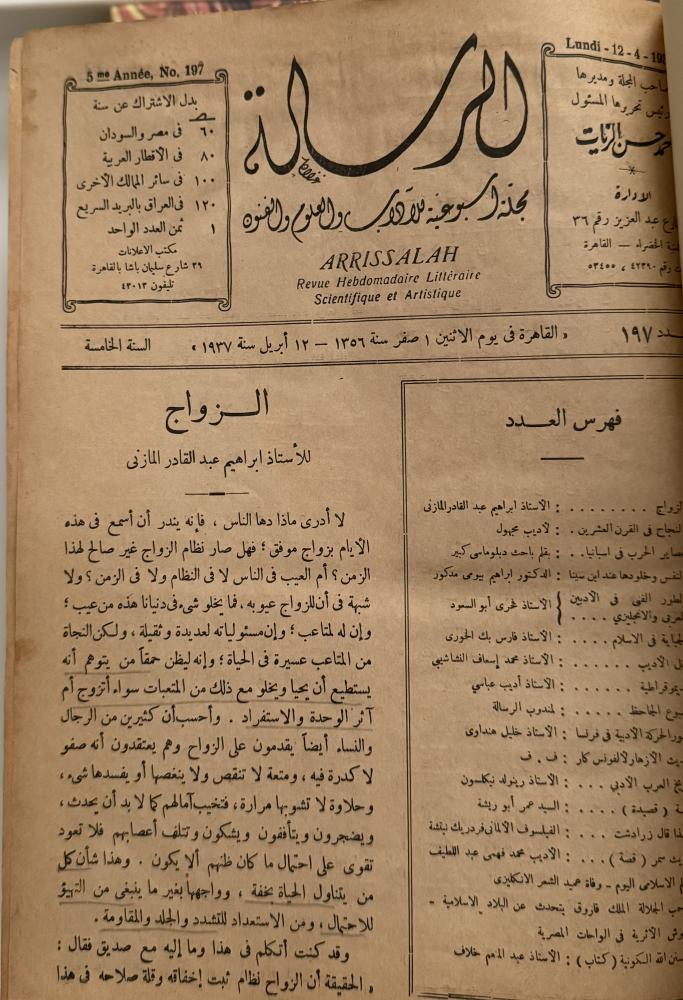 5 me Année, No, 197
بدل الاشتراك عن سنة
٦٠ فى مصر والسودان
٨٠ فى الأقطار العربية
١٠٠ فى سائر الممالك الأخرى
١٢٠ فى العراق بالبريد السريع
١ ثمن العدد الواحد
مكتب الاعلانات
٣٩ شارع سليمان باشا بالقاهرة
تليفون ٤٣٠١٣
الرسالة
مجلة أسبوعية للآداب والعلوم والفنون
ARRISSALAH
Revue Hebdomadaire Littéraire
Scientifique et Artistique
Lundi - 12 - 4 - 193
صاحب المجلة ومديرها
ورئيس تحريرها المسئول
أحمد حسن الزيات
الادارة
عبد العزيز رقم ٣٦
الخضراء — القاهرة
رقم ٤٢٣٩٠ ، ٥٣٤٥٥
ـدد ١٩٧
« القاهرة فى يوم الاثنين ١ صفر سنة ١٣٥٦ — ١٢ أبريل سنة ١٩٣٧ »
السنة الخامسة
فهرس العـــدد
الزواج . . . . . . . . : الأستاذ ابراهيم عبد القادر المازنى
النجاح فى القرن العشرين . : لأديب مجهول
مصاير الحرب فى اسبانيا . . : بقلم باحث دبلوماسى كبير
النفس وخلودها عند ابن سينا : الدكتور ابراهيم بيومى مدكور
التطور الفنى فى الأدبين
العربى والانجليزى . . . . } الأستاذ فخرى أبو السعود
الجباية فى الاسلام . . . . : الأستاذ فارس بك الخورى
الأديب . . . . . . : الأستاذ محمد إسعاف النشاشيبى
ديموقراطية . . . . . . : الأستاذ أديب عباسى
الجاحظ . . . . . : لمندوب الرسالة
الحركة الأدبية فى فرنسا : الأستاذ خليل هنداوى
الأزهار لألفونس كار : ف . ف
العرب الأدبى . . . : الأستاذ رينولد نيكلسون
( قصيدة ) . . . . : السيد عمر أبو ريشة
قال زرادشت . . . : الفيلسوف الألمانى فردريك نيتشة
سمر ( قصة ) . . . : الأديب محمد فهمى عبد اللطيف
الاسلامى اليوم - وفاة عميد الشعر الانكليزى
الجلالة الملك فاروق يتحدث عن البلاد الاسلامية -
الأثرية فى الواحات المصرية
سنن الله الكونية ( كتاب ) : الأستاذ عبد المنعم خلاف
الــزواج
للأستاذ ابراهيم عبد القادر المازنى
لا أدرى ماذا دها الناس ، فإنه يندر أن أسمع فى هذه
الأيام بزواج موفق ؛ فهل صار نظام الزواج غير صالح لهذا
الزمن ؟ أم العيب فى الناس لا فى النظام ولا فى الزمن ؟ ولا
شبهة فى أن للزواج عيوبه ، فما يخلو شىء فى دنيانا هذه من عيب ؛
وإن له لمتاعب ؛ وإن مسئولياته لعديدة وثقيلة ، ولكن النجاة
من المتاعب عسيرة فى الحياة ؛ وإنه ليظن حمقاً من يتوهم أنه
يستطيع أن يحيا ويخلو مع ذلك من المتعبات سواء أتزوج أم
آثر الوحدة والاستفراد . وأحسب أن كثيرين من الرجال
والنساء أيضاً يقدمون على الزواج وهم يعتقدون أنه صفو
لا كدرة فيه ، ومتعة لا تنقص ولا ينغصها أو يفسدها شىء ،
وحلاوة لا تشوبها مرارة ، فتخيب آمالهم كما لا بد أن يحدث ،
ويضجرون ويتأففون ويشكون وتتلف أعصابهم فلا تعود
تقوى على احتمال ما كان ظنهم ألا يكون . وهذا شأن كل
من يتناول الحياة بخفة ، وواجهها بغير ما ينبغى من التهيؤ
للاحتمال ، ومن الاستعداد للتشدد والجلد والمقاومة .
وقد كنت أتكلم فى هذا وما إليه مع صديق فقال :
« الحقيقة أن الزواج نظام ثبت إخفاقه وقلة صلاحه فى هذا